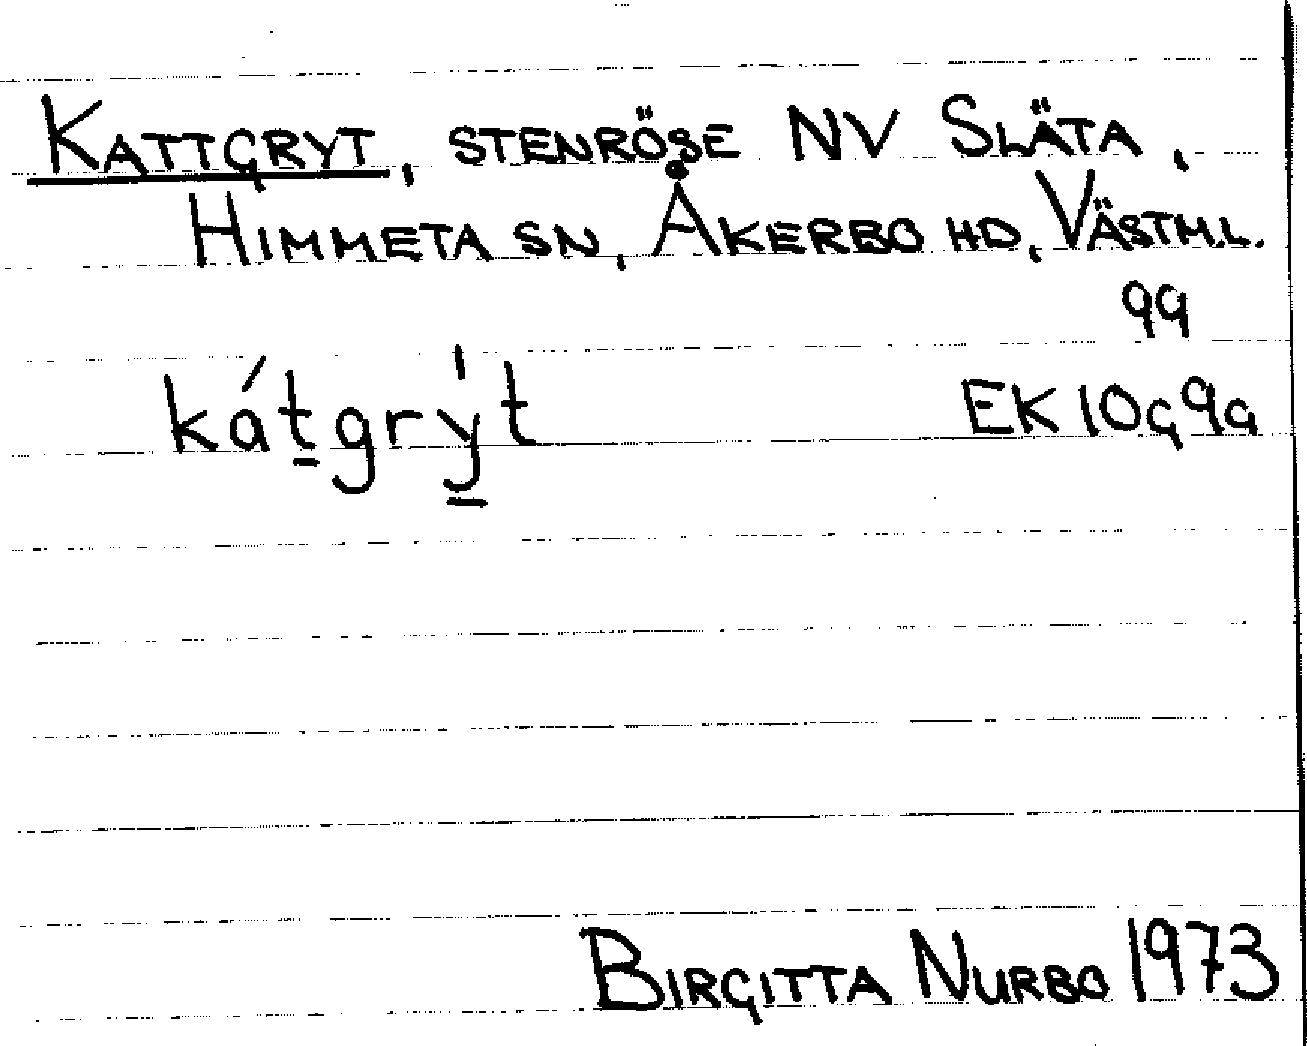 KATTGRYT, STENRÖSE NV SLÄTA,
HIMMETA SN, ÅKERBO HD, VÄSTML.
99
kátgry̍t
EK 10G9a
BIRGITTA NURBO 1973